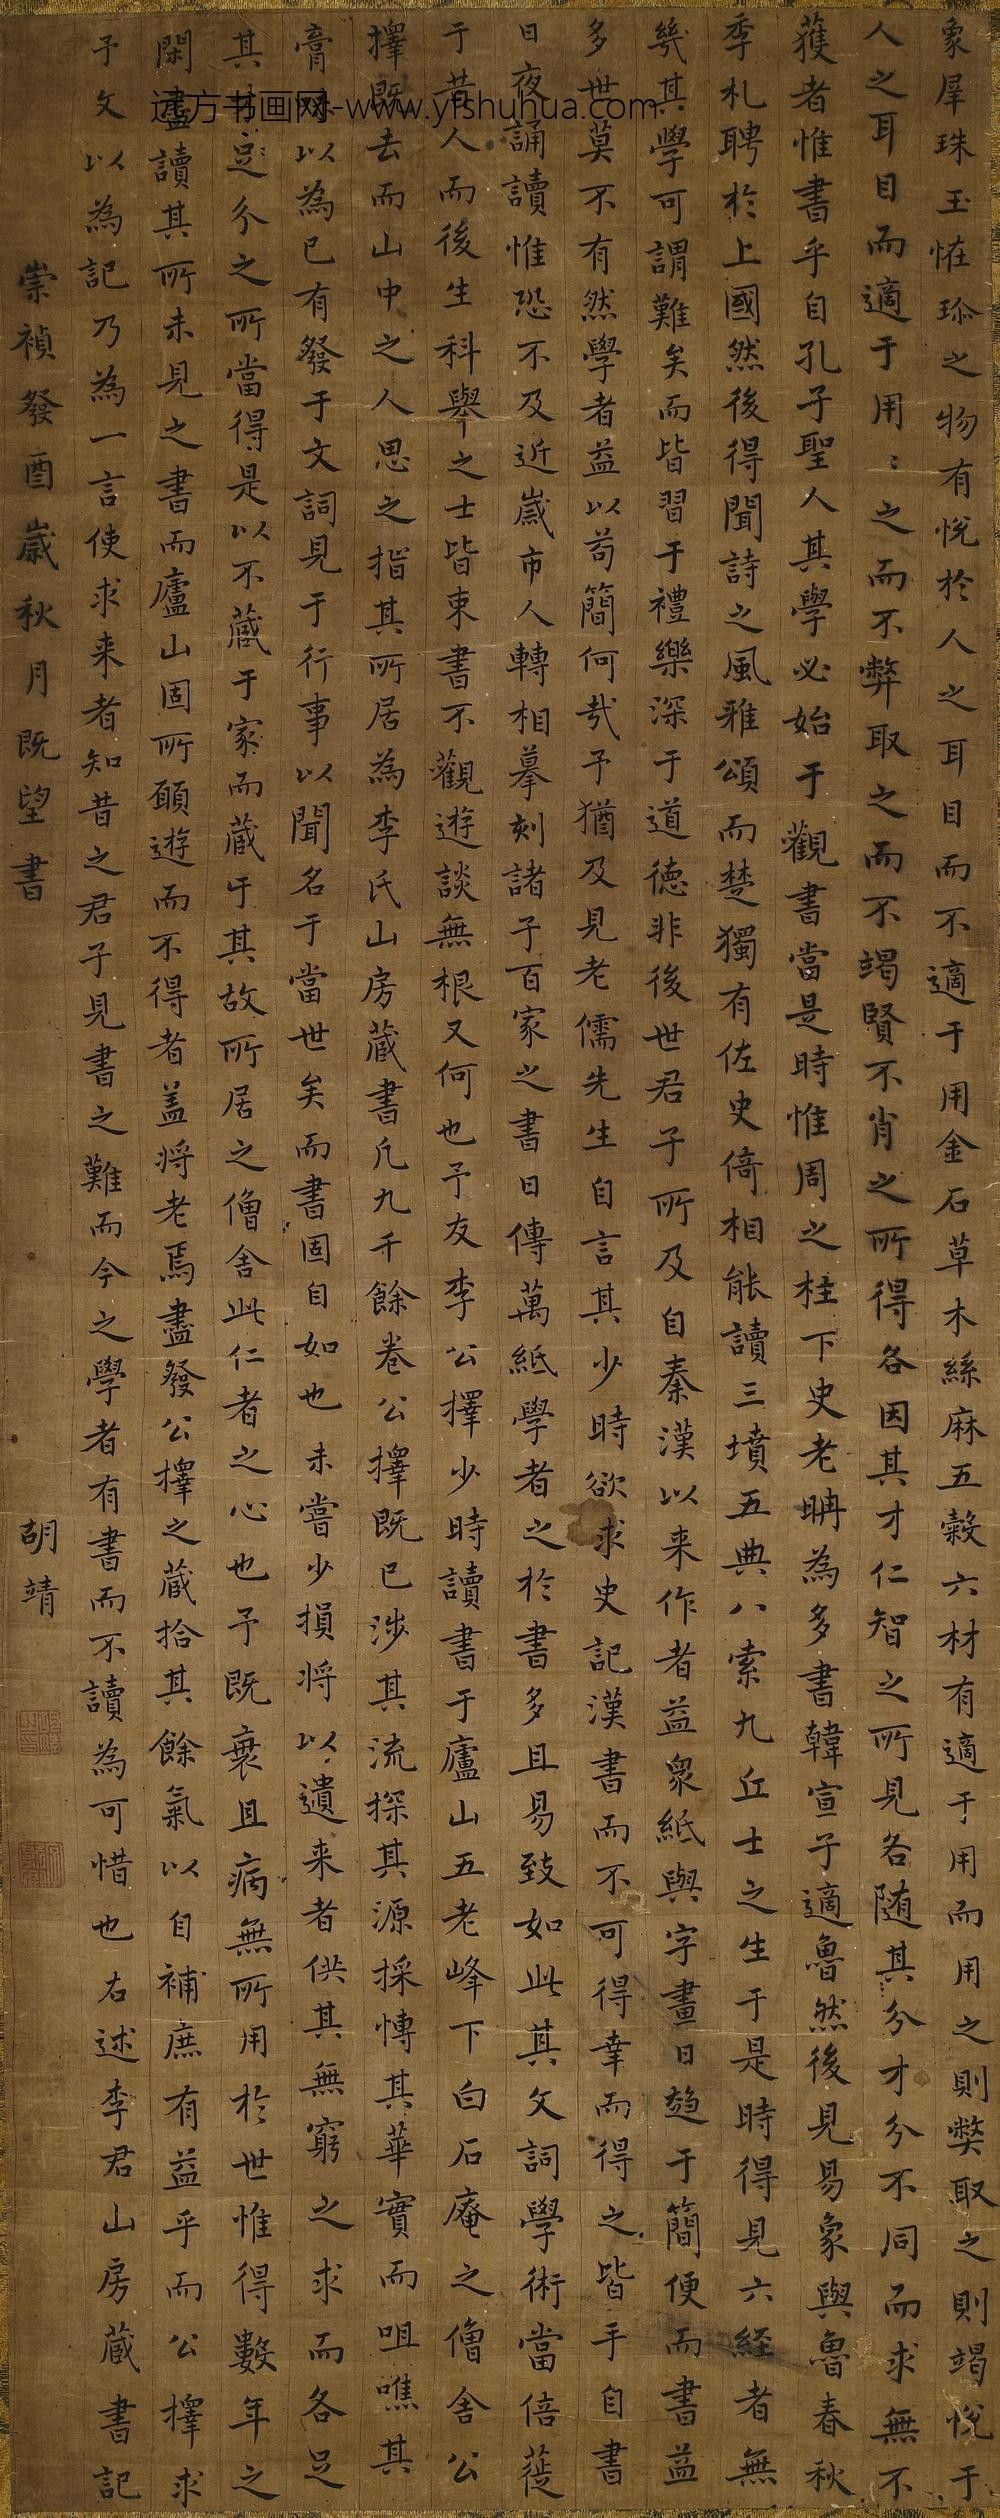 象犀珠玉恠珎之物有悅於人之耳目而不適于用金石草木絲麻五穀六材有適于用而用之則弊取之則竭悅于
人之耳目而適于用:之而不弊取之而不竭賢不肖之所得各因其才仁智之所見各随其分才分不同而求無不
獲者惟書乎自孔子聖人其學必始于觀書當是時惟周之柱下史老聃為多書韓宣子適魯然後見易象與魯春秋
季札聘於上國然後得聞詩之風雅頌而楚獨有佐史倚相能讀三墳五典八索九丘士之生于是時得見六経者無
幾其學可謂難矣而皆習于禮樂深于道德非後世君子所及自秦漢以来作者益眾紙與字畫日趍于簡便而書益
多世莫不有然學者益以苟簡何㢤予猶及見老儒先生自言其少時欲求史記漢書而不可得幸而得之皆手自書
日夜誦讀惟恐不及近嵗市人轉相摹刻諸子百家之書日傳萬紙學者之於書多且易致如此其文詞學術當倍蓰
于昔人而後生科舉之士皆束書不觀遊談無根又何也予友李公擇少時讀書于廬山五老峰下白石庵之僧舍公
擇既去而山中之人思之指其所居為李氏山房蔵書凡九千餘卷公擇既已涉其流探其源採慱其華實而咀噍其
膏味以為已有發于文詞見于行事以聞名于當世矣而書固自如也未嘗少損将以遺来者供其無窮之求而各足
其才足分之所當得是以不蔵于家而蔵于其故所居之僧舍此仁者之心也予既衰且病無所用於世惟得數年之
閑盡讀其所未見之書而廬山固所願遊而不得者盖将老焉盡發公擇之蔵拾其餘氣以自補庶有益乎而公擇求
予文以為記乃為一言使求来者知昔之君子見書之難而今之學者有書而不讀為可惜也右述李君山房蔵書記
崇禎發酉嵗秋月既望書 胡靖
远方书画网-www.yishuhua.com